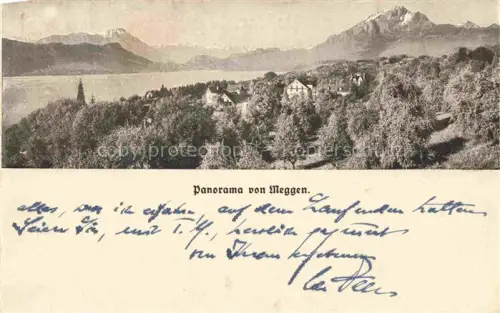 Panorama von Meggen.
alles, was ich erfahre, auf dem Laufenden halten
Seien Sie, mit herzlich gegrüsst
von Ihrem ergebenen